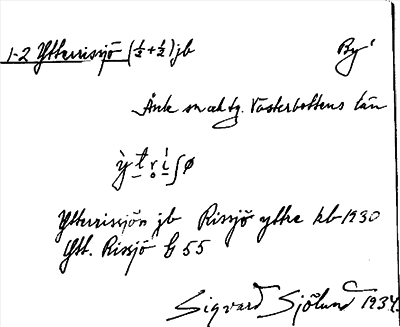 1-2 Ytterrissjö (½+½) jb By
Åsele sn o tg. Västerbottens län
Ytterrissjön jb Rissjö yttre kb 1930
Ytt. Rissjö G 55
Sigvard Sjölund 1934.